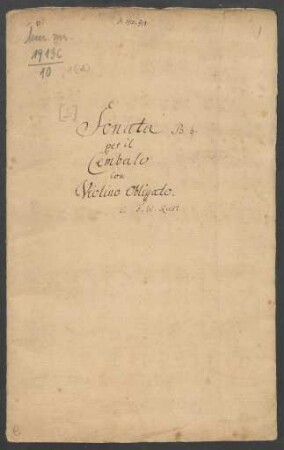 Mus. ms.
19196
10
Sonata
per il
Cembalo
con
Violino Obligato.
F. W. Rust